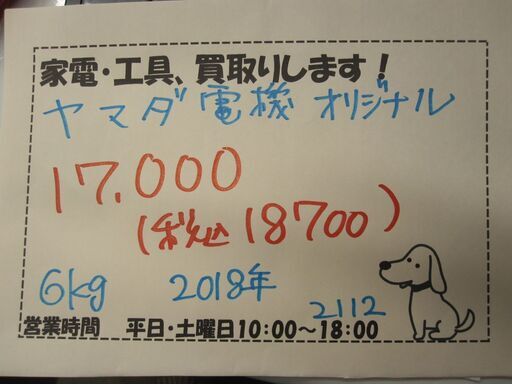 家電・工具、買取りします！
ヤマダ電機 オリジナル
17.000
(税込18700)
6kg 2018年
2112
営業時間 平日・土曜日10:00～18:00